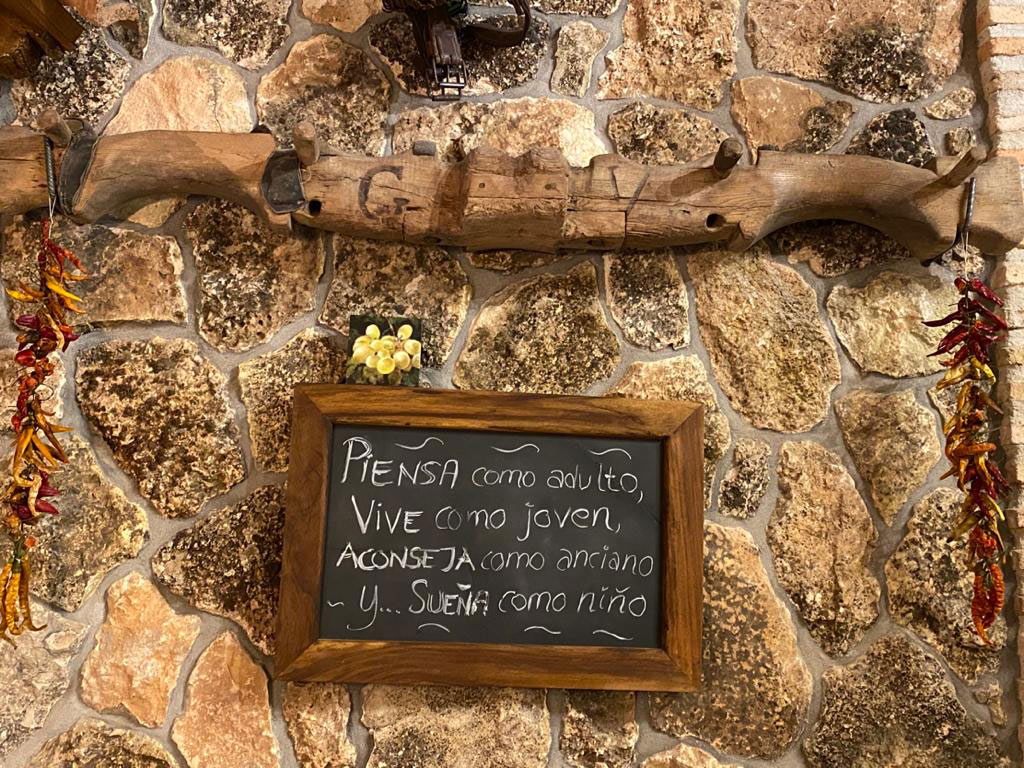 G V
PIENSA como adulto,
VIVE como joven,
ACONSEJA como anciano
~ y... SUEÑA como niño